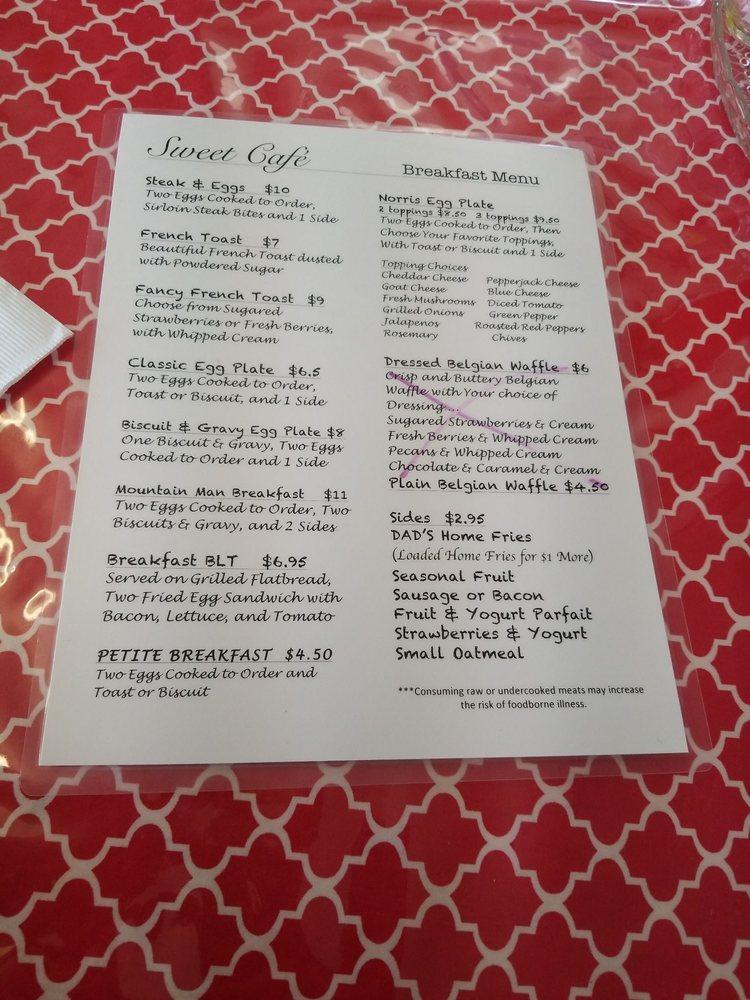 Sweet Café
Breakfast Menu
Steak & Eggs $10
Two Eggs Cooked to Order,
Sirloin Steak Bites and 1 Side
French Toast $7
Beautiful French Toast dusted
with Powdered Sugar
Fancy French Toast $9
Choose from Sugared
Strawberries or Fresh Berries,
with Whipped Cream
Classic Egg Plate $6.5
Two Eggs Cooked to Order,
Toast or Biscuit, and 1 Side
Biscuit & Gravy Egg Plate $8
One Biscuit & Gravy, Two Eggs
Cooked to Order and 1 Side
Mountain Man Breakfast $11
Two Eggs Cooked to Order, Two
Biscuits & Gravy, and 2 Sides
Breakfast BLT $6.95
Served on Grilled Flatbread,
Two Fried Egg Sandwich with
Bacon, Lettuce, and Tomato
PETITE BREAKFAST $4.50
Two Eggs Cooked to Order and
Toast or Biscuit
Norris Egg Plate
2 toppings $8.50 3 toppings $9.50
Two Eggs Cooked to Order, Then
Choose Your Favorite Toppings,
With Toast or Biscuit and 1 Side
Topping Choices
Cheddar Cheese Pepperjack Cheese
Goat Cheese Blue Cheese
Fresh Mushrooms Diced Tomato
Grilled Onions Green Pepper
Jalapenos Roasted Red Peppers
Rosemary Chives
Dressed Belgian Waffle $6
Crisp and Buttery Belgian
Waffle with Your choice of
Dressing...
Sugared Strawberries & Cream
Fresh Berries & Whipped Cream
Pecans & Whipped Cream
Chocolate & Caramel & Cream
Plain Belgian Waffle $4.50
Sides $2.95
DAD'S Home Fries
(Loaded Home Fries for $1 More)
Seasonal Fruit
Sausage or Bacon
Fruit & Yogurt Parfait
Strawberries & Yogurt
Small Oatmeal
***Consuming raw or undercooked meats may increase
the risk of foodborne illness.